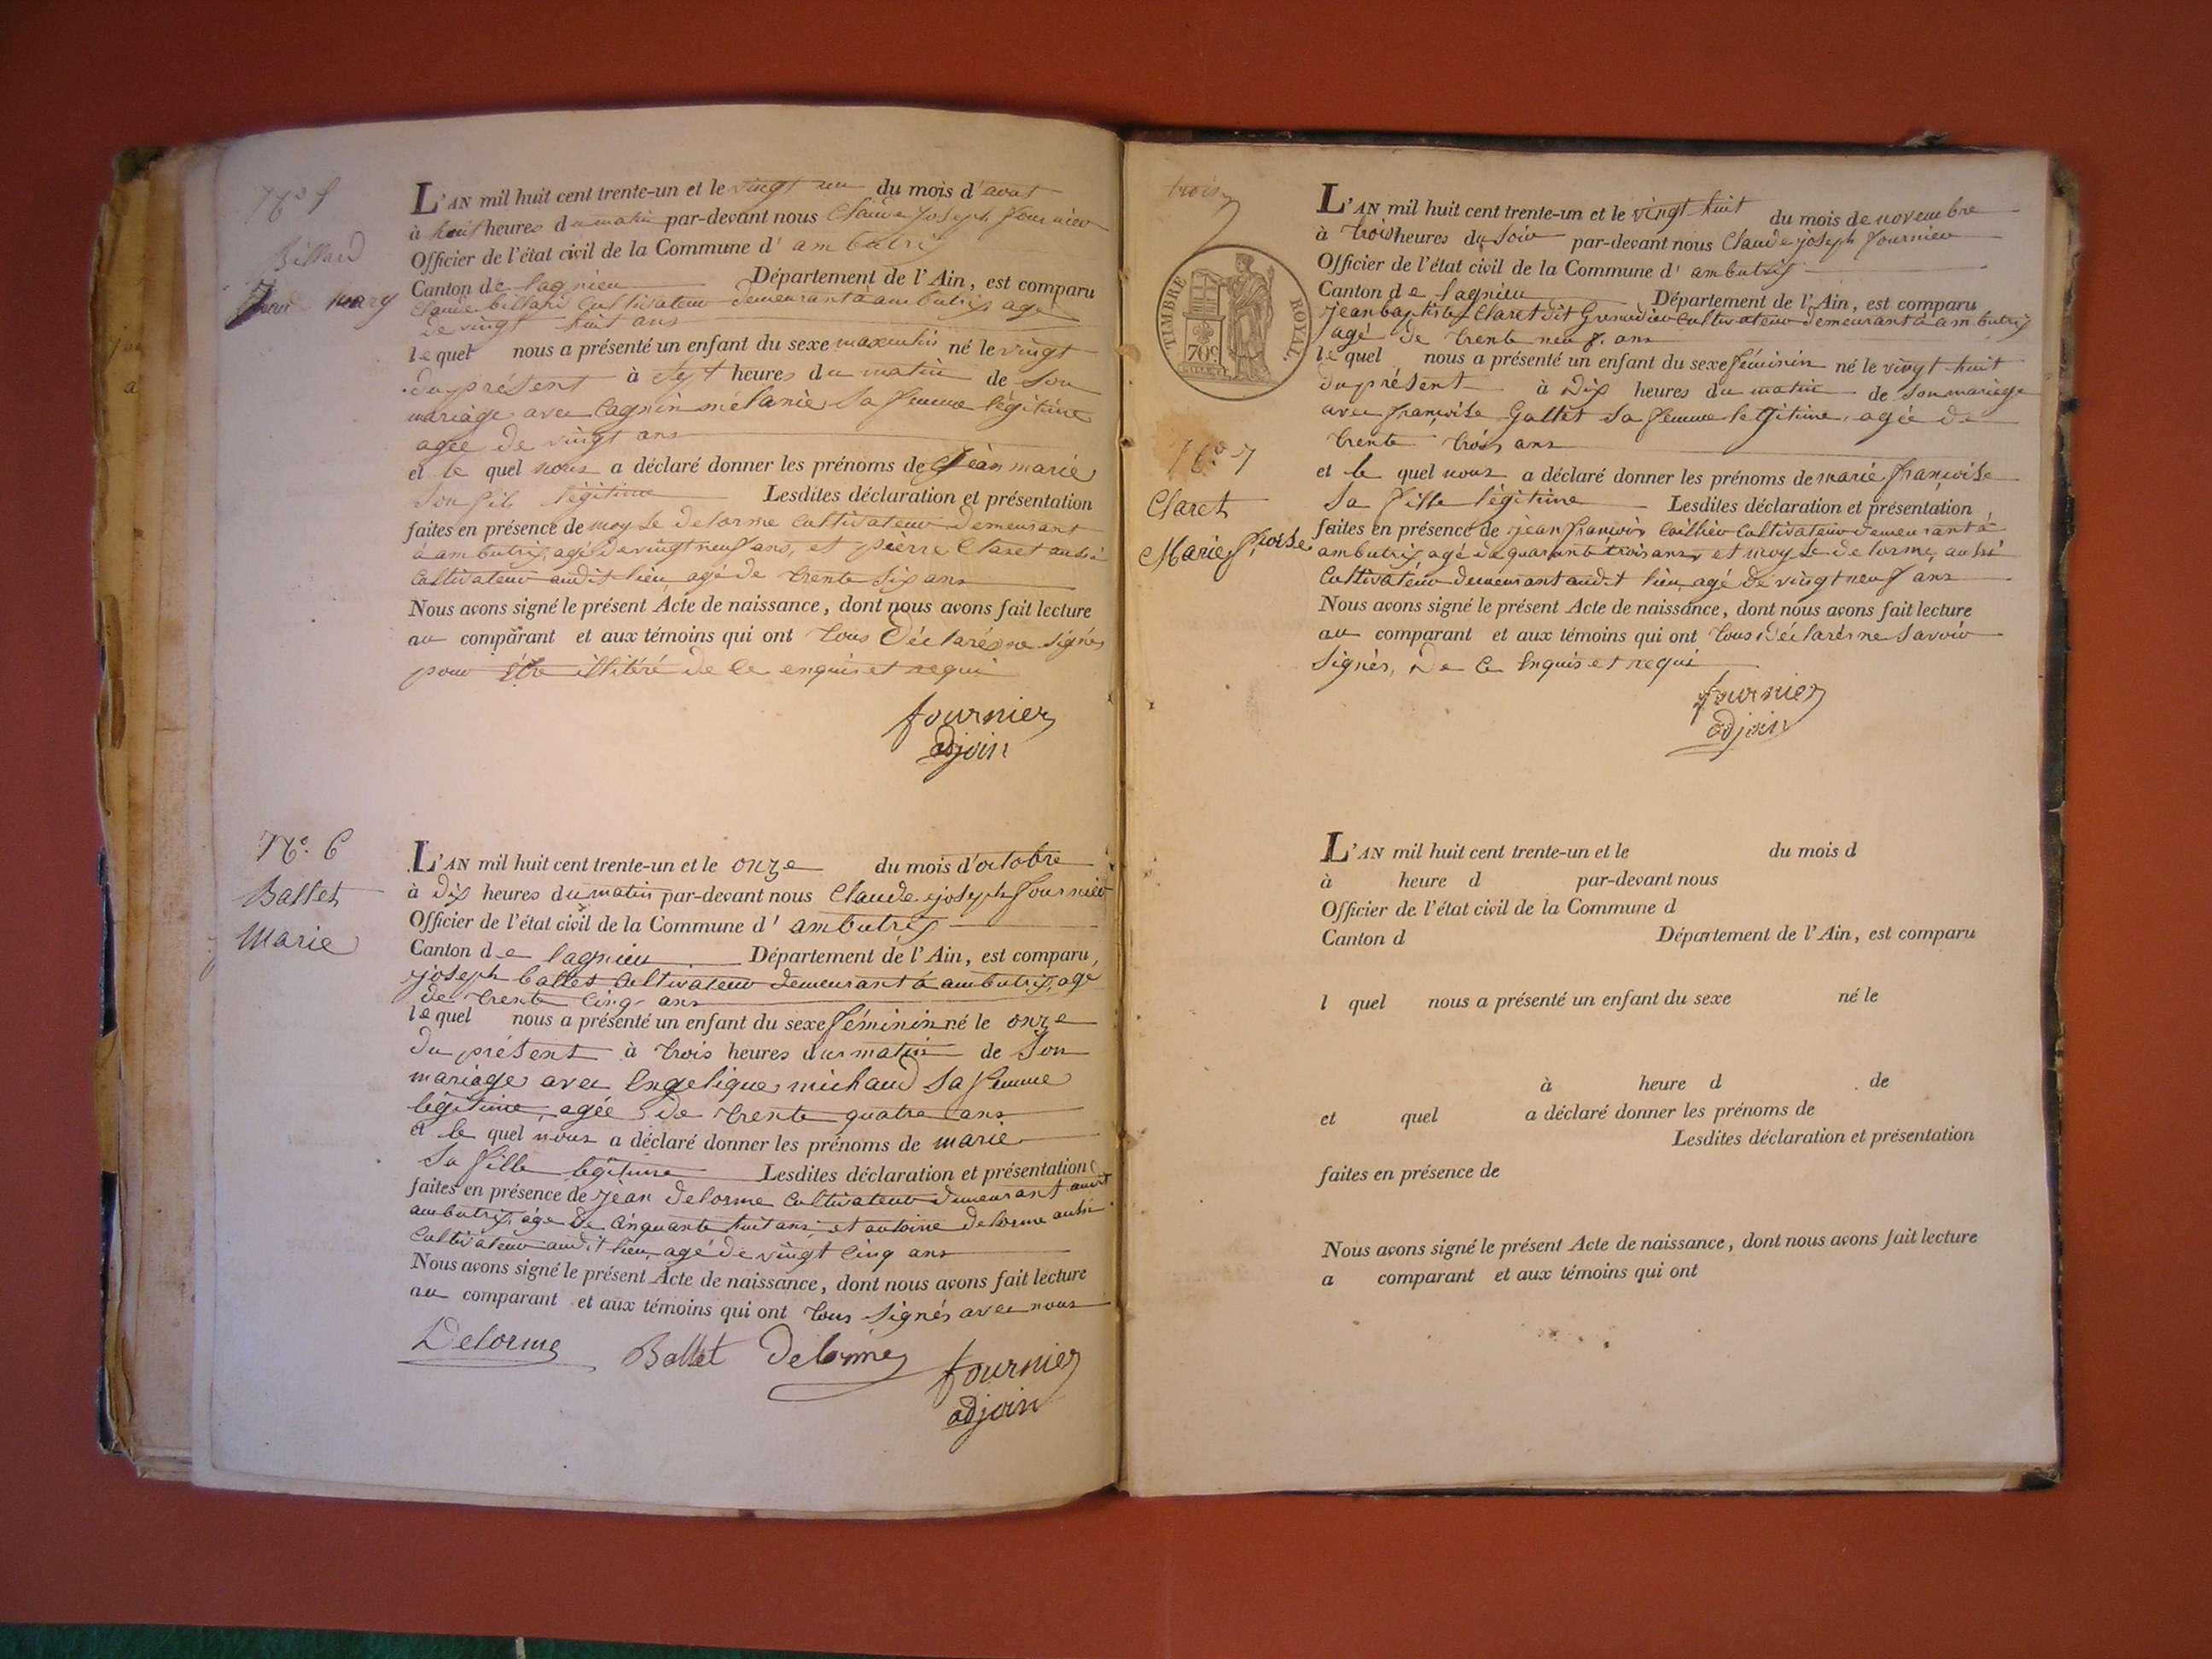 N.° 5
Billard
Jean Mary
L'AN mil huit cent trente-un et le vingt un du mois d'aout
à huit heures du matin par-devant nous Claude joseph fournier
Officier de l'état civil de la Commune d' ambutrix
Canton de lagnieu Département de l'Ain, est comparu
Claude billard Cultivateur demeurant à ambutrix agé
de vingt huit ans
lequel nous a présenté un enfant du sexe masculin né le vingt
du présent à sept heures du matin de son
mariage avec Cagnin mélanie sa femme légitime
agée de vingt ans
et le quel nous a déclaré donner les prénoms de jean marie
son fils légitime Lesdites déclaration et présentation
faites en présence de moyse delorme Cultivateur demeurant
à ambutrix, agé de vingt neuf ans, et pierre Claret aussi
Cultivateur audit lieu agé de trente six ans
Nous avons signé le présent Acte de naissance, dont nous avons fait lecture
au comparant et aux témoins qui ont tous déclarés ne signés
pour être illitéré de ce enquis et requi
fournier
adjoin
N.° 6
Ballet
Marie
L'AN mil huit cent trente-un et le onze du mois d'octobre
à dix heures du matin par-devant nous Claude joseph fournier
Officier de l'état civil de la Commune d' ambutrix
Canton de lagnieu Département de l'Ain, est comparu,
joseph ballet Cultivateur demeurant à ambutrix, agé
de trente cinq ans
lequel nous a présenté un enfant du sexe féminin né le onze
du présent à trois heures du matin de son
mariage avec Engelique michaud sa femme
légitime, agée de trente quatre ans
et le quel nous a déclaré donner les prénoms de marie
sa fille légitime Lesdites déclaration et présentation
faites en présence de jean delorme Cultivateur demeurant audit
ambutrix, agé de cinquante huit ans, et antoine delorme aussi
Cultivateur audit lieu, agé de vingt cinq ans
Nous avons signé le présent Acte de naissance, dont nous avons fait lecture
au comparant et aux témoins qui ont tous signés avec nous
Delorme Ballet Delorme fournier
adjoin
trois
TIMBRE ROYAL
70c
N.° 7
Claret
Marie fcoise
L'AN mil huit cent trente-un et le vingt huit du mois de novembre
à trois heures du soir par-devant nous Claude joseph fournier
Officier de l'état civil de la Commune d' ambutrix
Canton de lagnieu Département de l'Ain, est comparu
jean baptiste Claret dit Grenadier Cultivateur demeurant à ambutrix
agé de trente neuf ans
lequel nous a présenté un enfant du sexe féminin né le vingt huit
du présent à dix heures du matin de son mariage
avec françoise Gallet sa femme legitime, agée de
trente trois ans
et le quel nous a déclaré donner les prénoms de marie françoise
sa fille légitime Lesdites déclaration et présentation
faites en présence de jean françois Cultivateur demeurant à
ambutrix agé de quarante trois ans, et moyse delorme, aussi
Cultivateur demeurant audit lieu, agé de vingt neuf ans
Nous avons signé le présent Acte de naissance, dont nous avons fait lecture
au comparant et aux témoins qui ont tous déclarés ne savoir
signés, de ce enquis et requi
fournier
adjoin
L'AN mil huit cent trente-un et le du mois d
à heure d par-devant nous
Officier de l'état civil de la Commune d
Canton d Département de l'Ain, est comparu
l quel nous a présenté un enfant du sexe né le
à heure d de
et quel a déclaré donner les prénoms de
Lesdites déclaration et présentation
faites en présence de
Nous avons signé le présent Acte de naissance, dont nous avons fait lecture
a comparant et aux témoins qui ont